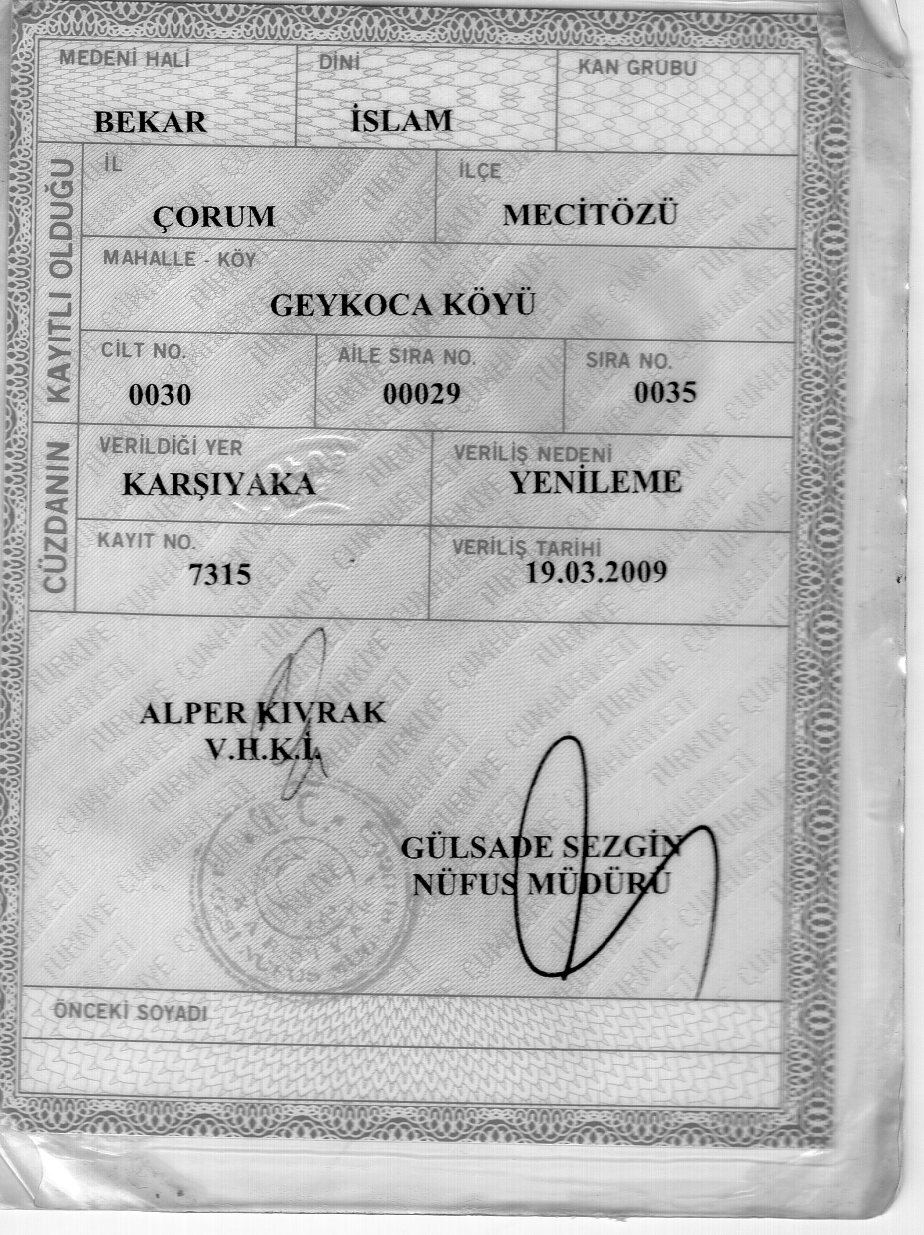 MEDENİ HALİ DİNİ KAN GRUBU
BEKAR İSLAM
KAYITLI OLDUĞU
İL İLÇE
ÇORUM MECİTÖZÜ
MAHALLE - KÖY
GEYKOCA KÖYÜ
CİLT NO. AİLE SIRA NO. SIRA NO.
0030 00029 0035
CÜZDANIN
VERİLDİĞİ YER VERİLİŞ NEDENİ
KARŞIYAKA YENİLEME
KAYIT NO. VERİLİŞ TARİHİ
7315 19.03.2009
ALPER KIVRAK
V.H.K.İ.
GÜLSADE SEZGİN
NÜFUS MÜDÜRÜ
T.C.
NÜFUS MÜD
ÖNCEKİ SOYADI
TÜRKİYE CUMHURİYETİ